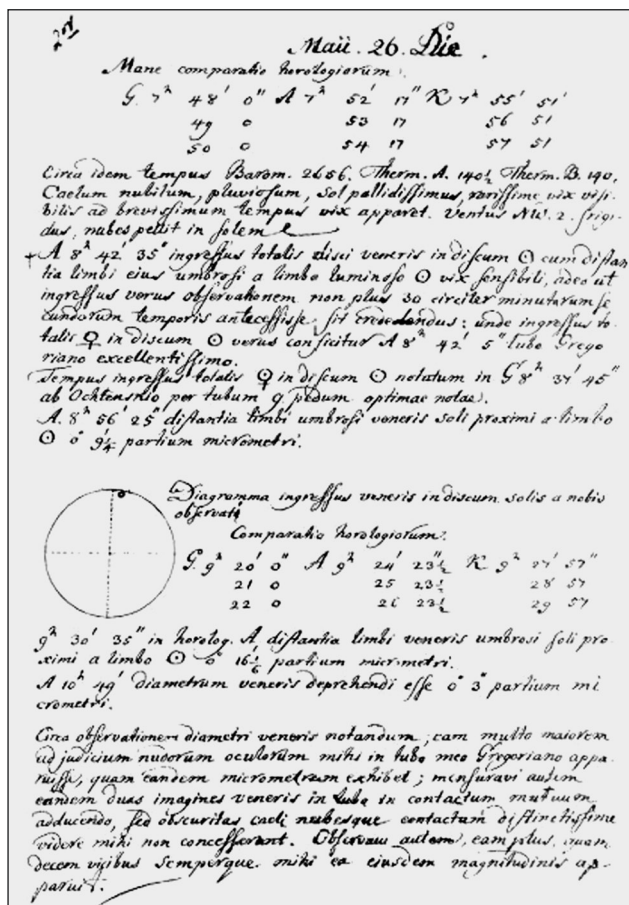 201
Maii. 26. Die.
Mane comparatio horologiorum.
G. 7h 48' 0" A 7h 52' 17" K 7h 55' 51'
49 0 53 17 56 51
50 0 54 17 57 51
Circa idem tempus Barom. 2656. Therm. A. 140½ Therm. B. 140.
Caelum nubilum, pluviosum, sol pallidissimus, rarissime vix visi-
bilis ad brevissimum tempus vix apparet. Ventus NW. 2. frigi-
dus, nubes pellit in solem
+ A 8h 42' 35" ingressus totalis disci veneris in discum ☉ cum distan
tia limbi eius umbrosi a limbo luminoso ☉ vix sensibili, adeo ut
ingressus verus observationem non plus 30 circiter minutorum se
cundorum temporis antecessisse, sit credendus: unde ingressus to-
talis ♀ in discum ☉ verus conficitur A 8h 42' 5" tubo Grego
riano excellentissimo.
Tempus ingressus totalis ♀ in discum ☉ notatum in G 8h 37' 45"
ab Ochtensnio per tubum 9 pedum optimae notae.
A. 8h 56' 25" distantia limbi umbrosi veneris soli proximi a limbo
☉ 0° 9¼ partium micrometri.
Diagramma ingressus veneris in discum solis a nobis
observati
Comparatio horologiorum.
G. 9h 20' 0" A 9h 24' 23½" K 9h 27' 57"
21 0 25 23½ 28 57
22 0 26 23½ 29 57
9h 30' 35" in horolog. A distantia limbi veneris umbrosi soli pro-
ximi a limbo ☉ 0° 16⅙ partium micrometri.
A 10h 49' diametrum veneris deprehendi esse 0° 3" partium mi
crometri.
Circa observationem diametri veneris notandum, eam multo maiorem
ad judicium nudorum oculorum mihi in tubo meo Gregoriano appa-
ruisse, quam eandem micrometrum exhibet; mensuravi autem
eandem duas imagines veneris in tubo in contactum mutuum
adducendo, sed obscuritas caeli nubesque contactum distinctissime
videre mihi non concesserunt. Observavi autem, eam plus, quam
decem vicibus semperque mihi ea eiusdem magnitudinis ap-
paruit.